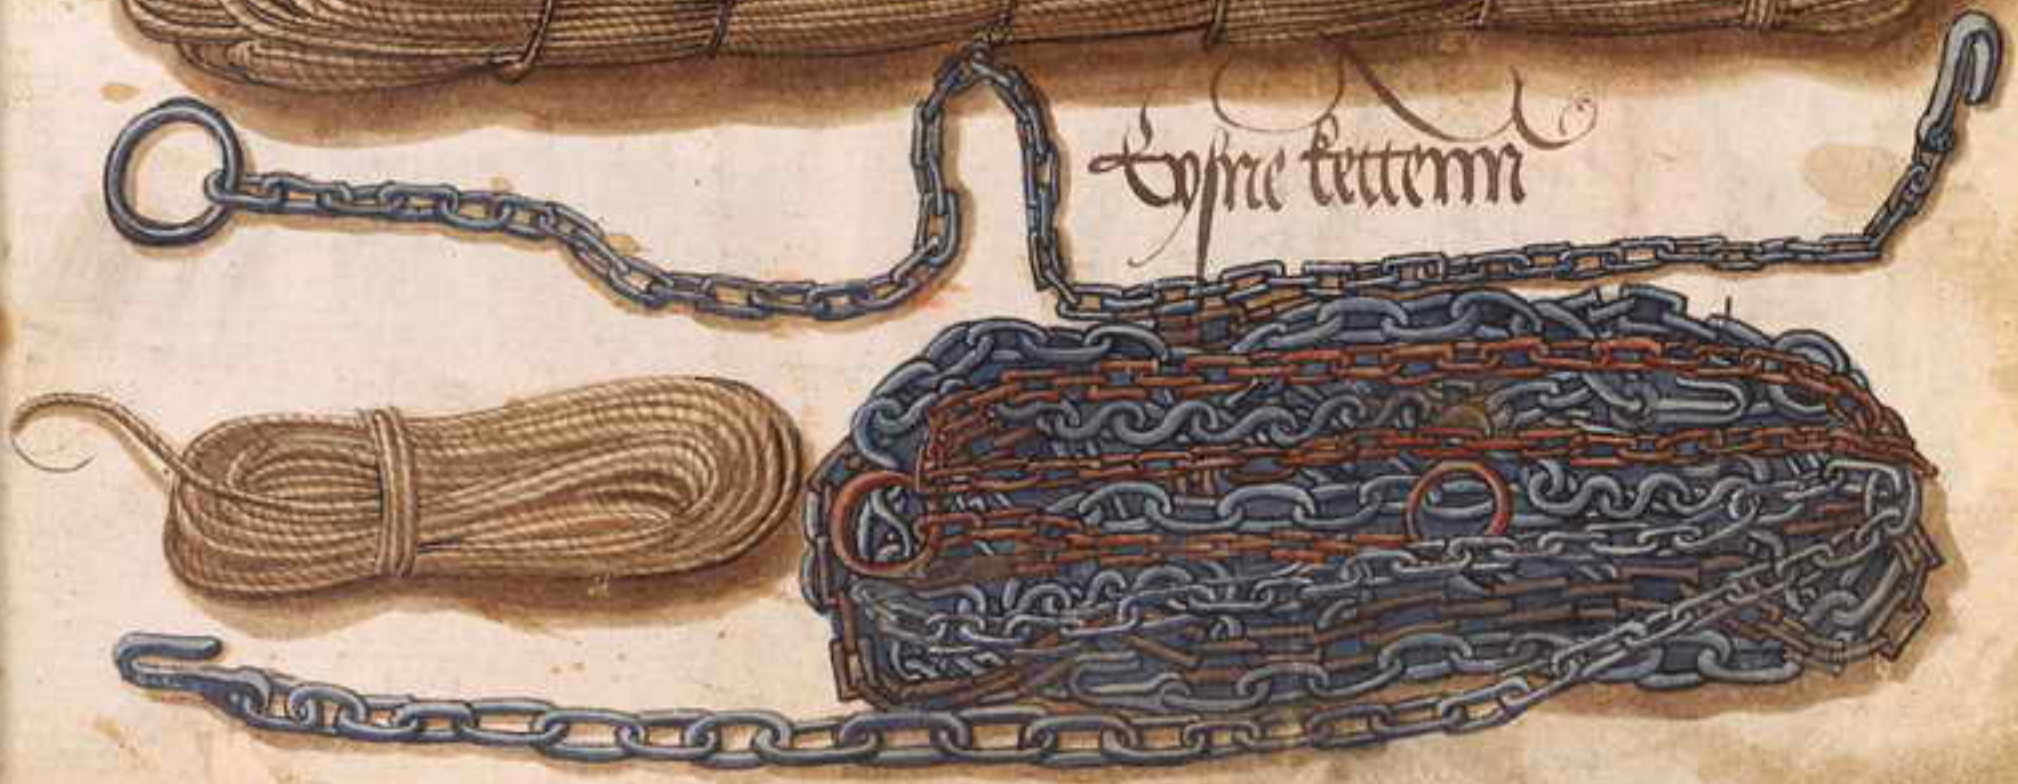 Eysne kettenn